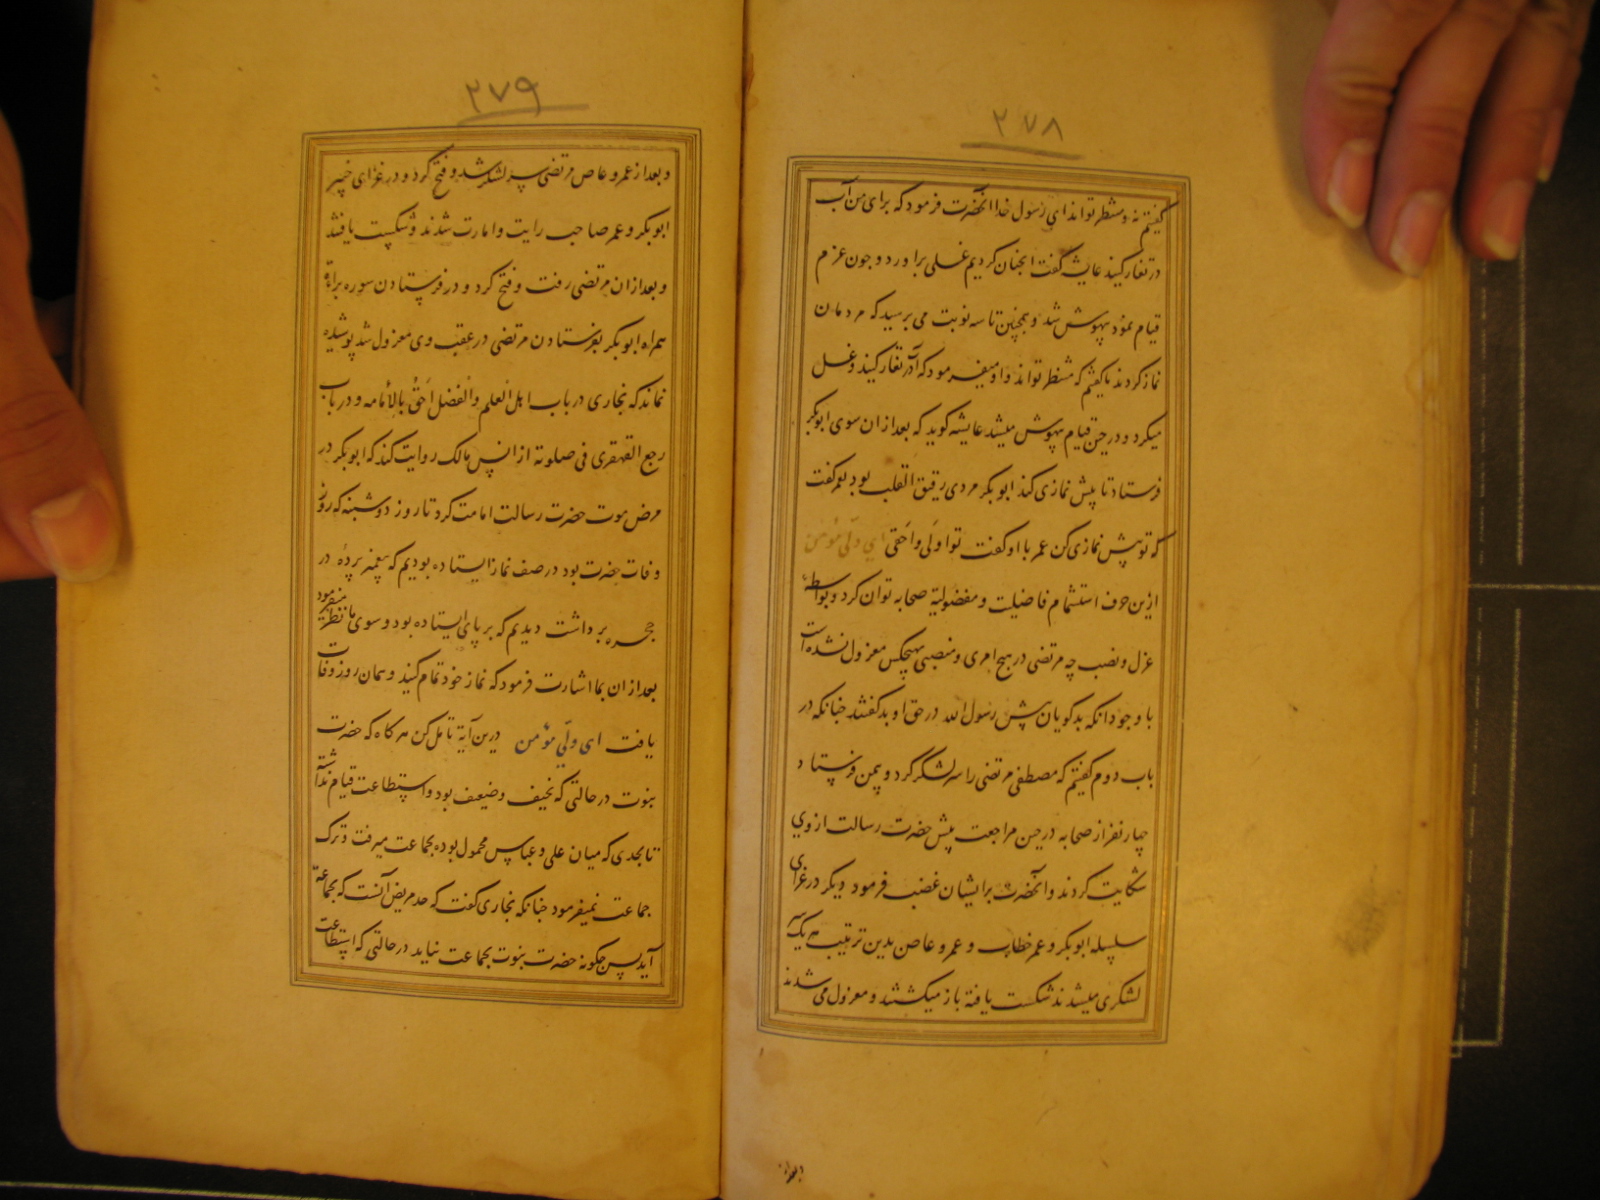 ۲۷۸
گفتم نه و منتظر تواند ای رسول خدا آنحضرت فرمود که برای من آب
در تغار کنید عایشه گفت انچنان کردیم غسلی براورد و چون عزم
قیام نمود بیهوش شد و همچنین تا سه نوبت می پرسید که مردمان
نماز کردند ما گفتیم که منتظر تواند و او میفرمود که آب در تغار کنید و غسل
میکرد و در حین قیام بیهوش میشد عایشه گوید که بعد ازان سوی ابوبکر
فرستاد تا پیش نمازی کند ابوبکر مردی رقیق القلب بود بعمر گفت
که تو پیش نمازی کن عمر با او گفت تو اولی و احقی ای ولی مؤمن
ازین حرف استشمام فاضلیت و مفضولیة صحابه توان کرد و بواسطه
عزل و نصب چه مرتضی در هیچ امری و منصبی بهیچکس معزول نشده است
با وجود انکه بدگویان پیش رسول الله در حق او بد گفتند چنانکه در
باب دوم گفتم که مصطفی مرتضی را سر لشکر کرد و بیمن فرستاد
چهار نفر از صحابه در حین مراجعت پیش حضرت رسالت از وی
شکایت کردند و آنحضرت برایشان غضب فرمود دیگر در غزای
سلسله ابوبکر و عمر خطاب و عمرو عاص بدین ترتیب هر یک سر
لشکری میشدند شکست یافته باز میگشتند و معزول می شدند
و بعد از
۲۷۹
و بعد از عمرو عاص مرتضی سر لشکر شد و فتح کرد و در غزای خیبر
ابوبکر و عمر صاحب رایت و امارت شدند و شکست یافتند
و بعد ازان مرتضی رفت و فتح کرد و در فرستادن سوره براءة
همراه ابوبکر بفرستادن مرتضی در عقب وی معزول شد پوشیده
نماند که بخاری در باب اهل العلم والفضل احق بالأمامه و در باب
رجع القهقری فی صلوته از انس مالک روایت کند که ابوبکر در
مرض موت حضرت رسالت امامت کرد تا روز دوشنبه که روز
وفات حضرت بود در صف نماز ایستاده بودیم که پیغمبر پرده در
حجره برداشت دیدیم که بر پای ایستاده بود و سوی ما نظر میفرمود
بعد ازان بما اشارت فرمود که نماز خود تمام کنید و همان روز وفات
یافت ای ولی مؤمن درین آیة تامل کن هر کاه که حضرت
نبوت در حالتی که نحیف و ضعیف بود و استطاعت قیام نداشته
تا بحدی که میان علی و عباس محمول بوده بجماعت میرفت و ترک
جماعت نمیفرمود چنانکه بخاری گفت که حد مریض آنست که بجماعة
آید پس چگونه حضرت نبوت بجماعت نیاید در حالتی که استطاعت